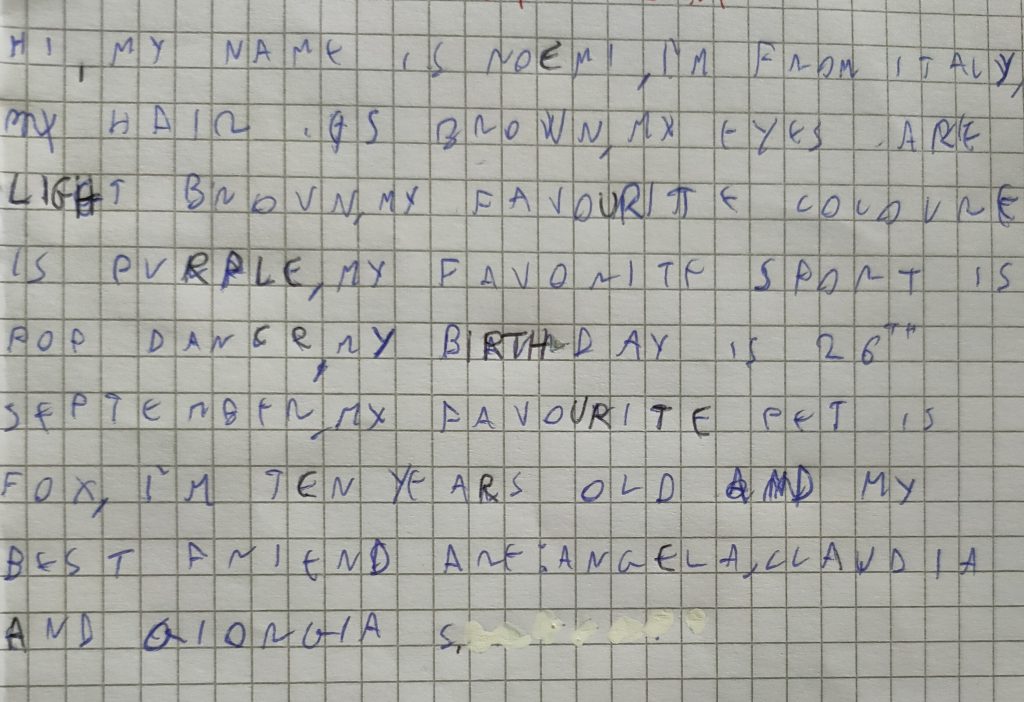 HI, MY NAME IS NOEMI, I'M FROM ITALY,
MY HAIR IS BROWN, MY EYES ARE
LIGHT BROVN, MY FAVOURITE COLOURE
IS PURPLE, MY FAVORITE SPORT IS
POP DANCE, MY BIRTHDAY IS 26TH
SEPTEMBER, MY FAVOURITE PET IS
FOX, I'M TEN YEARS OLD AND MY
BEST FRIEND ARE: ANGELA, CLAUDIA
AND GIORGIA S.